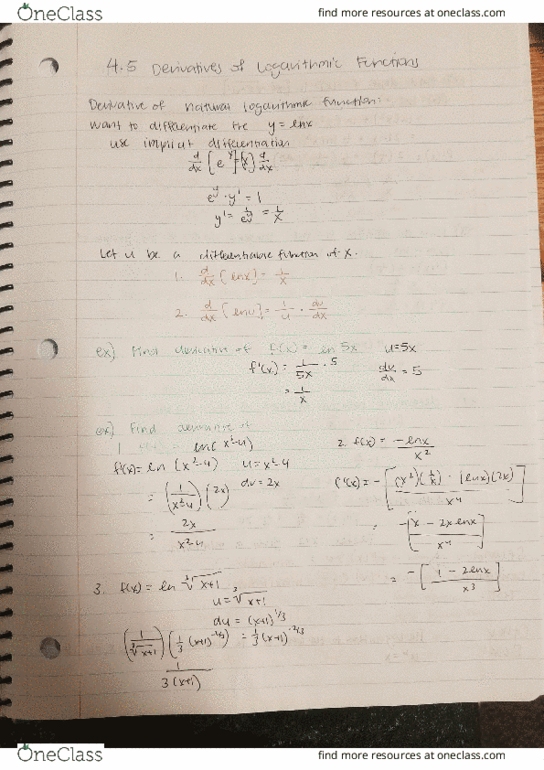 OneClass find more resources at oneclass.com
4.5 Derivatives of Logarithmic Functions
Derivative of natural logarithmic function:
want to differentiate the y = lnx
use implicit differentiation
d/dx [e^y] = [x] d/dx
e^y · y' = 1
y' = 1/e^y = 1/x
Let u be a differentiable function of x.
1. d/dx [lnx] = 1/x
2. d/dx [lnu] = 1/u · du/dx
ex) Find derivative of f(x) = ln 5x u = 5x
f'(x) = 1/5x · 5 du/dx = 5
= 1/x
ex) Find derivative of
1. ln(x²-4) 2. f(x) = -lnx/x²
f'(x) = ln (x²-4) u = x²-4 f'(x) = -[(x²)(1/x) - (lnx)(2x)/x⁴]
= (1/x²-4)(2x) du = 2x
= 2x/x²-4 = -[x - 2x lnx/x⁴]
= -[1 - 2lnx/x³]
3. f(x) = ln ³√x+1
u = ³√x+1
du = (x+1)^1/3
(1/³√x+1)(1/3 (x+1)^-2/3) = 1/3 (x+1)^-2/3
1/3(x+1)
OneClass find more resources at oneclass.com